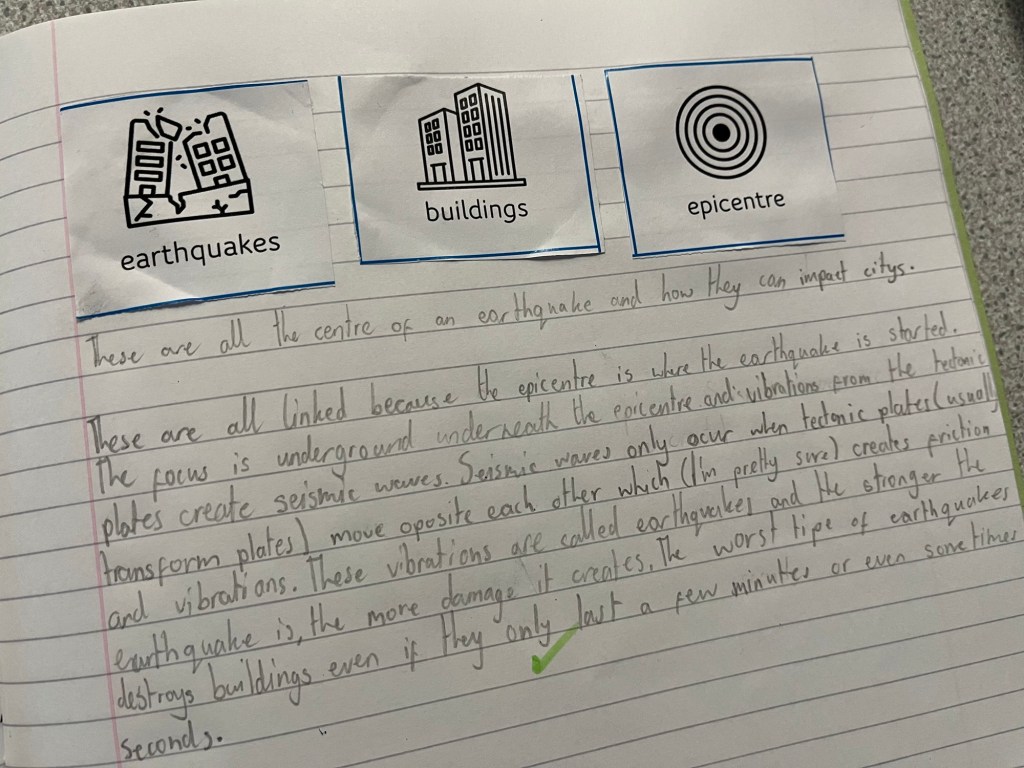 earthquakes
buildings
epicentre
These are all the centre of an earthquake and how they can impact citys.
These are all linked because the epicentre is where the earthquake is started.
The focus is underground underneath the epicentre and vibrations from the tectonic
plates create seismic waves. Seismic waves only ocur when tectonic plates (usually
transform plates) move oposite each other which (I'm pretty sure) creates friction
and vibrations. These vibrations are called earthquakes and the stronger the
earthquake is, the more damage it creates. The worst tipe of earthquakes
destroys buildings even if they only last a few minuttes or even sometimes
seconds.